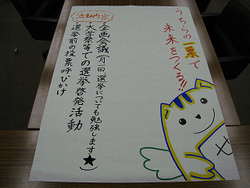 うちらの一票で
未来をつくる!!
活動内容
企画会議(月一回選挙についても勉強します)
大学祭等での選挙啓発活動
選挙前の投票呼びかけ